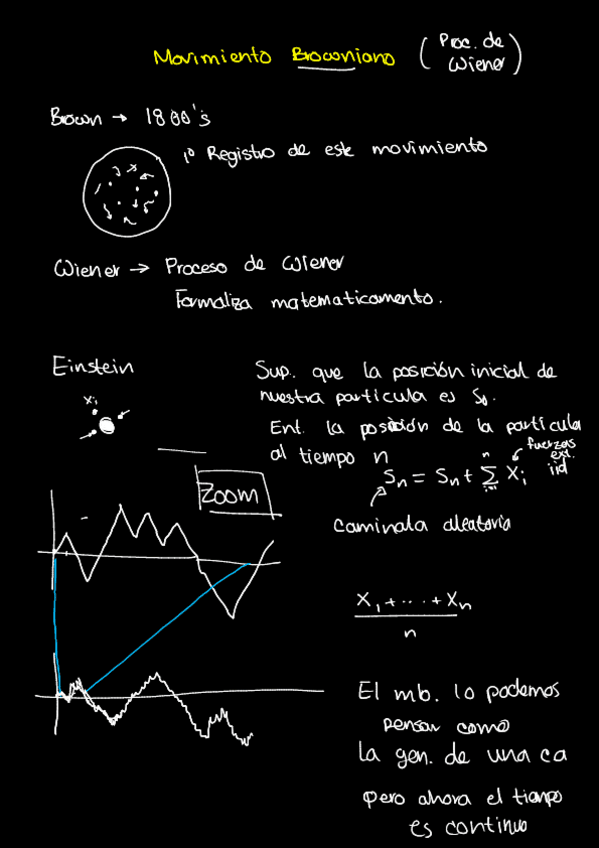 Movimiento Browniano (Proc. de Wiener)
Brown → 1800's
1º Registro de este movimiento
Wiener → Proceso de Wiener
Formaliza matematicamento.
Einstein
Xi
Sup. que la posición inicial de
nuestra particula es S₀.
Ent. la posición de la particula
al tiempo n
Sn = Sn + ∑ⁿᵢ₌₁ Xi
fuerzas ext. iid
caminala aleatoria
Zoom
X₁ + ... + Xn
n
El mb. lo podemos
pensar como
la gen. de una ca
pero ahora el tiempo
es continuo